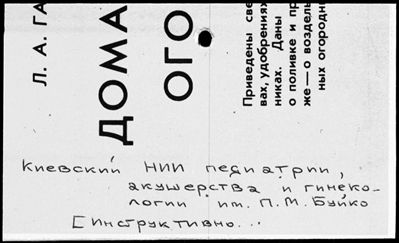 Л. А. ГА
ДОМА
ОГО
Приведены све
вах, удобрениях
никах. Даны
о поливке и пр
же — о воздель
ных огородн
Киевский НИИ педиатрии,
акушерства и гинеко-
логии им. П.М. Буйко
[инструктивно...